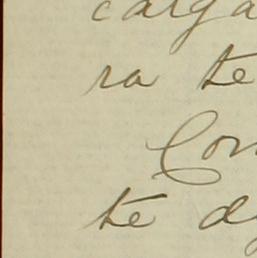 carga
ra te
Con
te d